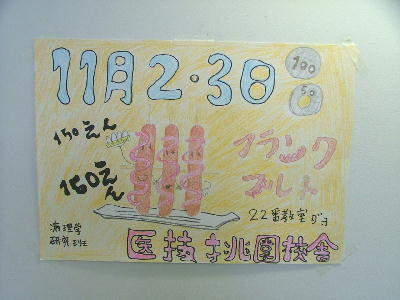 11月2・3日
100
50
150えん
150えん
フランク
フルト
22番教室ダヨ
病理学
研究班
医技 桃園校舎